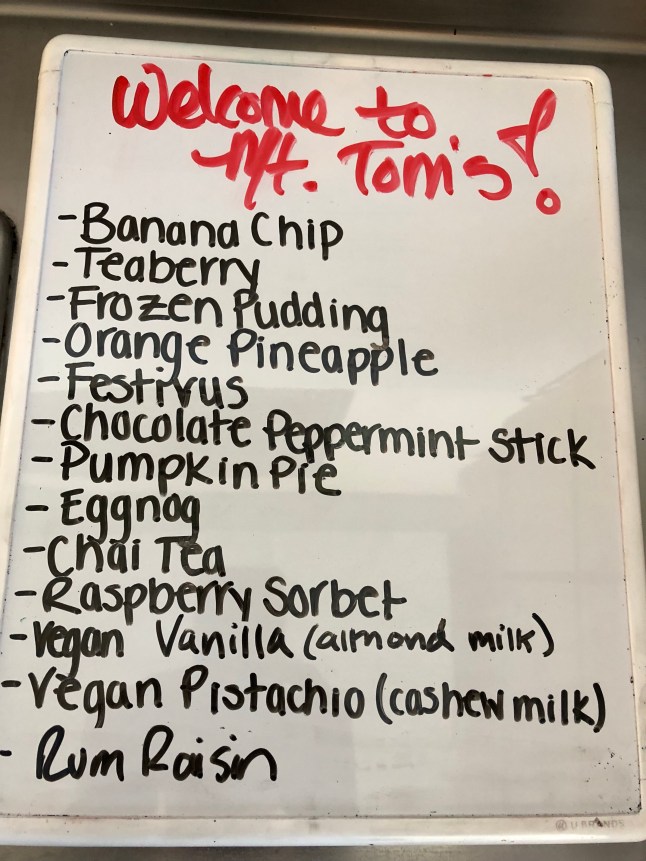 Welcome to
Mt. Tom's!
-Banana Chip
-Teaberry
-Frozen Pudding
-Orange Pineapple
-Festivus
-Chocolate Peppermint Stick
-Pumpkin Pie
-Eggnog
-Chai Tea
-Raspberry Sorbet
-Vegan Vanilla (almond milk)
-Vegan Pistachio (cashew milk)
- Rum Raisin
U BRANDS